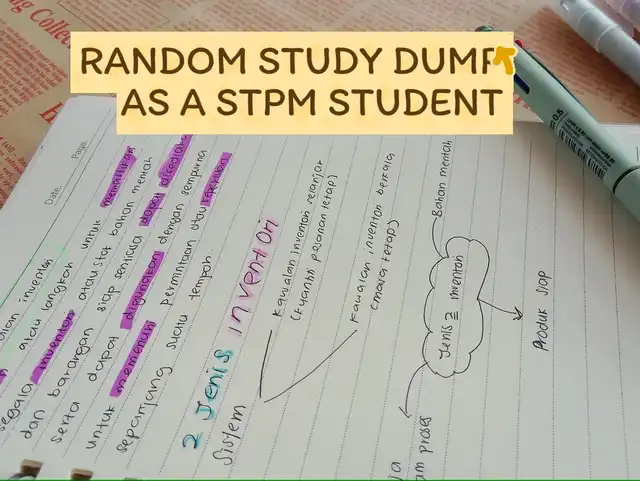 RANDOM STUDY DUMP
AS A STPM STUDENT
Page
Date
inventori
segala atau langkah untuk memastikan
inventori atau stok bahan mentah
dan barangan siap sentiasa dapat disediakan
serta dapat digunakan dengan sempurna
untuk memenuhi permintaan atau keperluan
sepanjang suatu tempoh
2 Jenis inventori
Sistem
kawalan inventori selanjar
(kuantiti pesanan tetap)
kawalan inventori berkala
(masa tetap)
Jenis2 inventori
Bahan mentah
Produk siap
proses
0.5